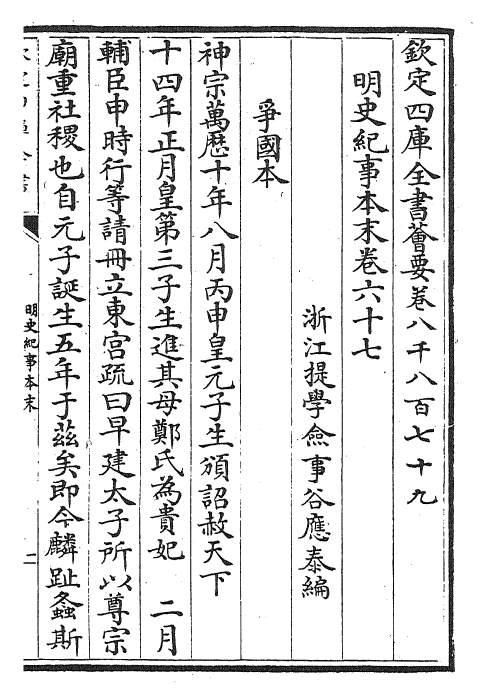 欽定四庫全書薈要卷八千八百七十九
明史紀事本末卷六十七
浙江提學僉事谷應泰編
爭國本
神宗萬厯十年八月丙申皇元子生頒詔赦天下
十四年正月皇第三子生進其母鄭氏為貴妃　二月
輔臣申時行等請冊立東宮疏曰早建太子所以尊宗
廟重社稷也自元子誕生五年于茲矣即今麟趾螽斯
明史紀事本末
二